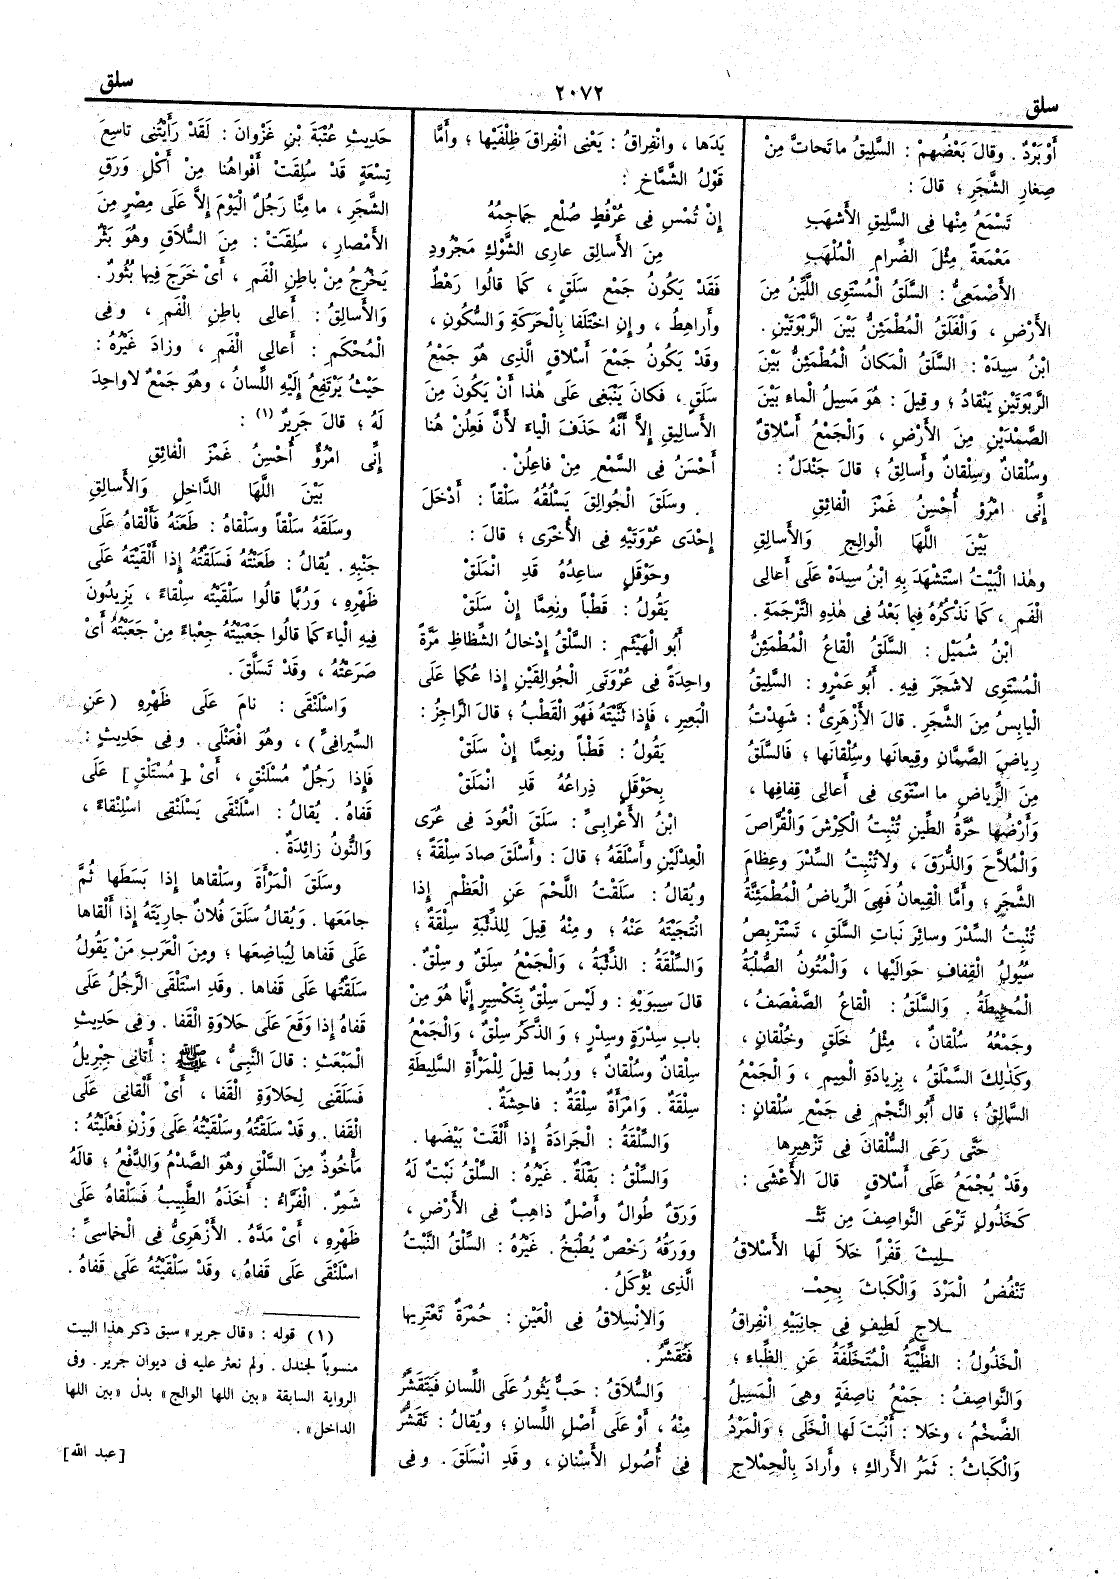 سلق
٢٠٧٢
سلق
أَوْ بَرْدٌ . وقالَ بَعْضُهمْ : السَّلِيقُ ما تَحاتَّ مِنْ
صِغارِ الشَّجَرِ ؛ قالَ :
تَسْمَعُ مِنْها فِى السَّلِيقِ الأَشْهَبِ
مَعْمَعَةً مِثْلَ الضِّرامِ الْمُلْهَبِ
الأَصْمَعِىُّ : السَّلَقُ الْمُسْتَوِى اللَّيِّنُ مِنَ
الأَرْضِ ، وَالْفَلَقُ الْمُطْمَئِنُّ بَيْنَ الرَّبْوَتَيْنِ .
ابْنُ سِيدَهْ : السَّلَقُ الْمَكانُ الْمُطْمَئِنُّ بَيْنَ
الرَّبْوَتَيْنِ يَنْقادُ ؛ وقِيلَ : هُوَ مَسِيلُ الْماءِ بَيْنَ
الصَّمْدَيْنِ مِنَ الأَرْضِ ، وَالْجَمْعُ أَسْلاقٌ
وسُلْقانٌ وسِلْقانٌ وأَسالِقُ ؛ قالَ جَنْدَلٌ :
إِنِّى امْرُؤٌ أُحْسِنُ غَمْزَ الْفائِقِ
بَيْنَ اللَّهَا الْوالِجِ وَالأَسالِقِ
وهٰذا الْبَيْتُ اسْتَشْهَدَ بِهِ ابْنُ سِيدَهْ عَلَى أَعالِى
الْفَمِ ، كَما نَذْكُرُهُ فِيما بَعْدُ فِى هٰذِهِ التَّرْجَمَةِ .
ابْنُ شُمَيْلٍ : السَّلَقُ الْقاعُ الْمُطْمَئِنُّ
الْمُسْتَوِى لا شَجَرَ فِيهِ . أَبُو عَمْرٍو : السَّلِيقُ
الْيابِسُ مِنَ الشَّجَرِ . قالَ الأَزْهَرِىُّ : شَهِدْتُ
رِياضَ الصَّمَّانِ وقِيعانَها وسِلْقانَها ؛ فَالسَّلَقُ
مِنَ الرِّياضِ ما اسْتَوَى فِى أَعالِى قِفافِها ،
وأَرْضُها حُرَّةُ الطِّينِ تُنْبِتُ الْكِرْشَ وَالْقُرَّاصَ
وَالْمُلَّاحَ وَالذُّرَقَ ، ولا تُنْبِتُ السِّدْرَ وعِظامَ
الشَّجَرِ ؛ وأَمَّا الْقِيعانُ فَهِىَ الرِّياضُ الْمُطْمَئِنَّةُ
تُنْبِتُ السِّدْرَ وسائِرَ نَباتِ السَّلَقِ ، تَسْتَرْبِضُ
سُيُولُ الْقِفافِ حَوالَيْها ، وَالْمُتُونُ الصُّلْبَةُ
الْمُحِيطَةُ . وَالسَّلَقُ : الْقاعُ الصَّفْصَفُ ،
وجَمْعُهُ سُلْقانٌ ، مِثْلُ خَلَقٍ وخُلْقانٍ ،
وكَذٰلِكَ السَّمْلَقُ ، بِزِيادَةِ الْمِيمِ ، وَالْجَمْعُ
السَّمالِقُ ؛ قال أَبُو النَّجْمِ فِى جَمْعِ سُلْقانٍ :
حَتَّى رَعَى السُّلْقانَ فِى تَزْهِيرِها
وقَدْ يُجْمَعُ عَلَى أَسْلاقٍ قالَ الأَعْشَى :
كَخَذُولٍ تَرْعَى النَّواصِفَ مِن تَثْـ
ـلِيثَ قَفْراً خَلَا لَها الأَسْلاقُ
تَنْفُضُ الْمَرْدَ وَالْكَباثَ بِحِمْـ
ـلاجٍ لَطِيفٍ فِى جانِبَيْهِ انْفِراقُ
الْخَذُولُ : الظَّبْيَةُ الْمُتَخَلِّفَةُ عَنِ الظِّباءِ ؛
وَالنَّواصِفُ : جَمْعُ ناصِفَةٍ وهِىَ الْمَسِيلُ
الضَّخْمُ ، وخَلا : أَنْبَتَ لَها الْخَلَى ؛ وَالْمَرْدُ
وَالْكَباثُ : ثَمَرُ الأَراكِ ؛ وأَرادَ بِالْحِمْلاجِ
يَدَها ، وانْفِراقُ : يَعْنِى انْفِراقَ ظِلْفَيْها ؛ وأَمَّا
قَوْلُ الشَّمَّاخِ :
إِنْ تُمْسِ فِى عُرْفُطٍ صُلْعٍ جَماجِمُهُ
مِنَ الأَسالِقِ عارِى الشَّوْكِ مَجْرُودِ
فَقَدْ يَكُونُ جَمْعَ سَلَقٍ ، كَما قالُوا رَهْطٌ
وأَراهِطُ ، وإِنِ اخْتَلَفا بِالْحَرَكَةِ وَالسُّكُونِ ،
وقَدْ يَكُونُ جَمْعَ أَسْلاقٍ الَّذِى هُوَ جَمْعُ
سَلَقٍ ، فَكانَ يَنْبَغِى عَلَى هٰذا أَنْ يَكُونَ مِنَ
الأَسالِيقِ إِلاَّ أَنَّهُ حَذَفَ الْياءَ لأَنَّ فَعِلُنْ هُنا
أَحْسَنُ فِى السَّمْعِ مِنْ فاعِلُنْ .
وسَلَقَ الْجُوالِقَ يَسْلُقُهُ سَلْقاً : أَدْخَلَ
إِحْدَى عُرْوَتَيْهِ فِى الأُخْرَى ؛ قالَ :
وحَوْقَلٍ ساعِدُهُ قَدِ انْمَلَقْ
يَقُولُ : قَطْباً ونِعِمَّا إِنْ سَلَقْ
أَبُو الْهَيْثَمِ : السَّلْقُ إِدْخالُ الشِّظاظِ مَرَّةً
واحِدَةً فِى عُرْوَتَىِ الْجُوالِقَيْنِ إِذا عُكِما عَلَى
الْبَعِيرِ ، فَإِذا ثَنَّيْتَهُ فَهُوَ الْقَطْبُ ؛ قالَ الرَّاجِزُ :
يَقُولُ : قَطْباً ونِعِمَّا إِنْ سَلَقْ
بِحَوْقَلٍ ذِراعُهُ قَدِ انْمَلَقْ
ابْنُ الأَعْرابِىِّ : سَلَقَ الْعُودَ فِى عُرَى
الْعِدْلَيْنِ وأَسْلَقَهُ ؛ قالَ : وأَسْلَقَ صادَ سِلْقَةً ؛
ويُقالُ : سَلَقْتُ اللَّحْمَ عَنِ الْعَظْمِ إِذا
انْتَجَيْتَهُ عَنْهُ ؛ ومِنْهُ قِيلَ لِلذِّئْبَةِ سِلْقَةٌ ؛
وَالسِّلْقَةُ : الذِّئْبَةُ ، وَالْجَمْعُ سِلَقٌ وسِلْقٌ .
قالَ سِيبَوَيْهِ : ولَيْسَ سِلْقٌ بِتَكْسِيرٍ إِنَّما هُوَ مِنْ
بابِ سِدْرَةٍ وسِدْرٍ ؛ وَالذَّكَرُ سِلْقٌ ، وَالْجَمْعُ
سِلْقانٌ وسُلْقانٌ ؛ ورُبما قِيلَ لِلْمَرْأَةِ السَّلِيطَةِ
سِلْقَةٌ . وَامْرَأَةٌ سِلْقَةٌ : فاحِشَةٌ .
وَالسِّلْقَةُ : الْجَرادَةُ إِذا أَلْقَتْ بَيْضَها .
وَالسِّلْقُ : بَقْلَةٌ . غَيْرُهُ : السِّلْقُ نَبْتٌ لَهُ
وَرَقٌ طُوالٌ وأَصْلٌ ذاهِبٌ فِى الأَرْضِ ،
ووَرَقُهُ رَخْصٌ يُطْبَخُ . غَيْرُهُ : السِّلْقُ النَّبْتُ
الَّذِى يُؤْكَلُ .
وَالاِنْسِلاقُ فِى الْعَيْنِ : حُمْرَةٌ تَعْتَرِيها
فَتُقَشَّرُ .
وَالسُّلاقُ : حَبٌّ يَثُورُ عَلَى اللِّسانِ فَيَتَقَشَّرُ
مِنْهُ ، أَوْ عَلَى أَصْلِ اللِّسانِ ؛ ويُقالُ : تَقَشُّرٌ
فِى أُصُولِ الأَسْنانِ ، وقَدِ انْسَلَقَ . وفِى
حَدِيثِ عُتْبَةَ بْنِ غَزْوانَ : لَقَدْ رَأَيْتُنِى تاسِعَ
تِسْعَةٍ قَدْ سُلِقَتْ أَفْواهُنا مِنْ أَكْلِ وَرَقِ
الشَّجَرِ ، ما مِنَّا رَجُلٌ الْيَوْمَ إِلاَّ عَلَى مِصْرٍ مِنَ
الأَمْصارِ ، سُلِقَتْ : مِنَ السُّلاقِ وهُوَ بَثْرٌ
يَخْرُجُ مِنْ باطِنِ الْفَمِ ، أَىْ خَرَجَ فِيها بُثُورٌ .
وَالأَسالِقُ : أَعالِى باطِنِ الْفَمِ ، وفِى
الْمُحْكَمِ : أَعالِى الْفَمِ ، وزادَ غَيْرُهُ :
حَيْثُ يَرْتَفِعُ إِلَيْهِ اللِّسانُ ، وهُوَ جَمْعٌ لا واحِدَ
لَهُ ؛ قالَ جَرِيرٌ (١) :
إِنِّى امْرُؤٌ أُحْسِنُ غَمْزَ الْفائِقِ
بَيْنَ اللَّهَا الدَّاخِلِ وَالأَسالِقِ
وسَلَقَهُ سَلْقاً وسَلْقاهُ : طَعَنَهُ فَأَلْقاهُ عَلَى
جَنْبِهِ . يُقالُ : طَعَنْتُهُ فَسَلَقْتُهُ إِذا أَلْقَيْتَهُ عَلَى
ظَهْرِهِ ، ورُبَّما قالُوا سَلْقَيْتُهُ سِلْقاءً ، يَزِيدُونَ
فِيهِ الْياءَ كَما قالُوا جَعْبَيْتُهُ جِعْباءً مِنْ جَعَبْتُهُ أَىْ
صَرَعْتُهُ ، وقَدْ تَسَلَّقَ .
وَاسْلَنْقَى : نامَ عَلَى ظَهْرِهِ (عَنِ
السِّيرافِىِّ) ، وهُوَ افْعَنْلَى . وفِى حَدِيثٍ :
فَإِذا رَجُلٌ مُسْلَنْقٍ ، أَىْ [مُسْتَلْقٍ] عَلَى
قَفاهُ . يُقالُ : اسْلَنْقَى يَسْلَنْقِى اسْلِنْقاءً ،
وَالنُّونُ زائِدَةٌ .
وسَلَقَ الْمَرْأَةَ وسَلْقاها إِذا بَسَطَها ثُمَّ
جامَعَها . ويُقالُ سَلَقَ فُلانٌ جارِيَتَهُ إِذا أَلْقاها
عَلَى قَفاها لِيُباضِعَها ؛ ومِنَ الْعَرَبِ مَنْ يَقُولُ
سَلَقْتُها عَلَى قَفاها . وقَدِ اسْتَلْقَى الرَّجُلُ عَلَى
قَفاهُ إِذا وَقَعَ عَلَى حَلاوَةِ الْقَفا . وفِى حَدِيثِ
الْمَبْعَثِ : قالَ النَّبِىُّ ، ﷺ : أَتانِى جِبْرِيلُ
فَسَلَقَنِى لِحَلاوَةِ الْقَفا ، أَىْ أَلْقانِى عَلَى
الْقَفا . وقَدْ سَلَقْتُهُ وسَلْقَيْتُهُ عَلَى وَزْنِ فَعْلَيْتُهُ :
مَأْخُوذٌ مِنَ السَّلْقِ وهُوَ الصَّدْمُ وَالدَّفْعُ ؛ قالَهُ
شَمِرٌ . الْفَرَّاءُ : أَخَذَهُ الطَّبِيبُ فَسَلْقاهُ عَلَى
ظَهْرِهِ ، أَىْ مَدَّهُ . الأَزْهَرِىُّ فِى الْخُماسِىِّ :
اسْلَنْقَى عَلَى قَفاهُ ، وقَدْ سَلْقَيْتُهُ عَلَى قَفاهُ .
(١) قوله : «قال جرير» سبق ذكر هذا البيت
منسوباً لجندل . ولم نعثر عليه فى ديوان جرير . وفى
الرواية السابقة «بين اللها الوالج» بدل «بين اللها
الداخل» .
[عبد الله]